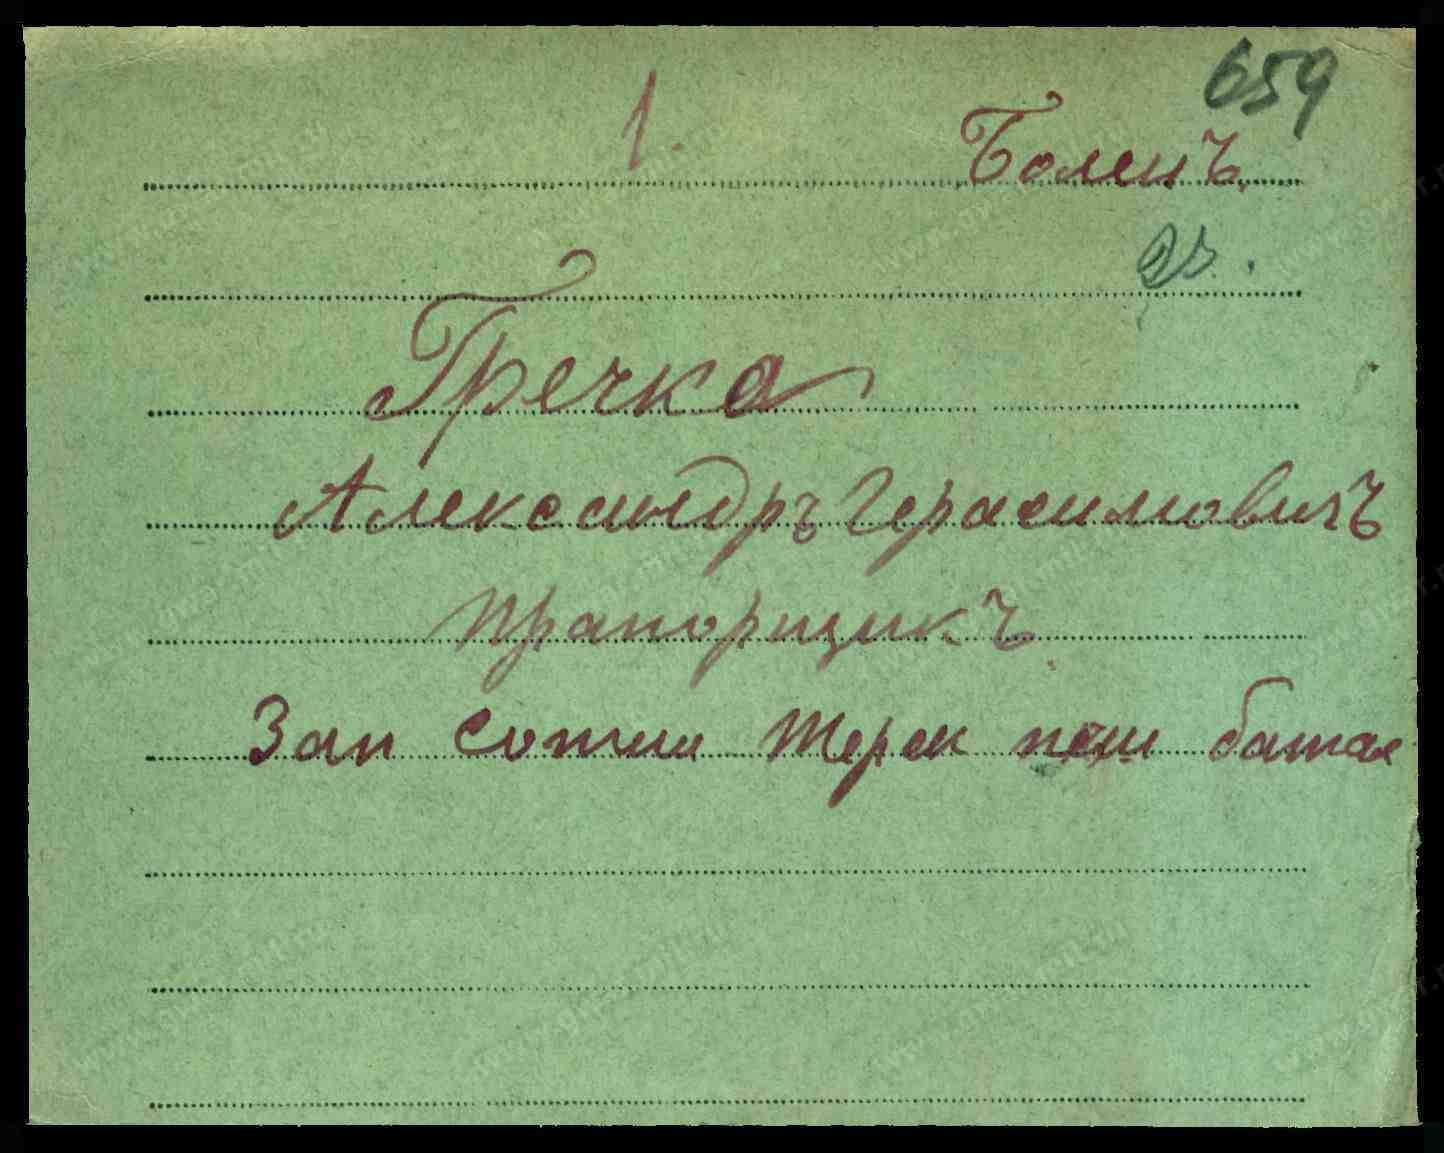 659
1. Боленъ
Гречка
Александръ Герасимовичъ
Прапорщикъ
Зап сотни Терек пеш батал